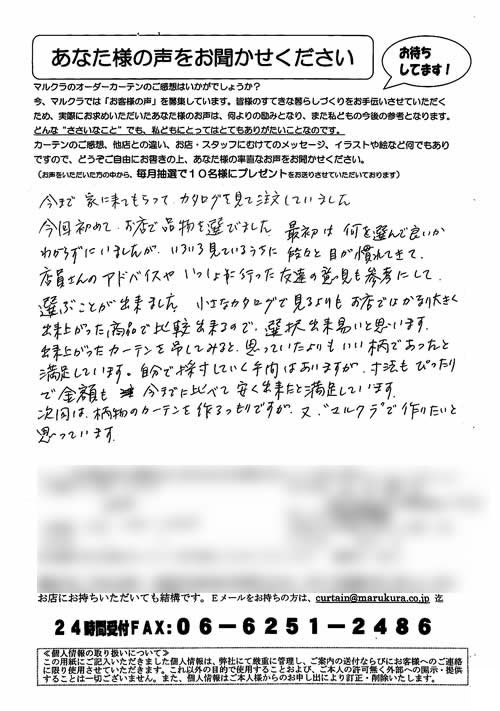 あなた様の声をお聞かせください
お待ち
してます!
マルクラのオーダーカーテンのご感想はいかがでしょうか?
今、マルクラでは「お客様の声」を募集しています。皆様のすてきな暮らしづくりをお手伝いさせていただく
ため、実際にお求めいただいたあなた様のお声は、何よりの励みとなり、また私どもの今後の参考となります。
どんな“ささいなこと”でも、私どもにとってはとてもありがたいことなのです。
カーテンのご感想、他店との違い、お店・スタッフにむけてのメッセージ、イラストや絵など何でもあり
ですので、どうぞご自由にお書きの上、あなた様の率直なお声をお聞かせください。
(お声をいただいた方の中から、毎月抽選で10名様にプレゼントをお送りさせていただいております)
今まで 家に来てもらって カタログを見て注文していました
今回初めて お店で品物を選びました 最初は 何を選んで良いか
わからずにいましたが、いろいろ見ているうちに 段々と目が慣れてきて、
店員さんのアドバイスや いっしょに行った友達の意見も参考にして、
選ぶことが出来ました 小さなカタログで見るよりも お店ではかなり大きく
出来上がった商品で比較出来るので、選択出来易いと思います。
出来上がったカーテンを吊してみると、思っていたよりもいい柄であったと
満足しています。自分で採寸していく手間はありますが、寸法も ぴったり
で金額も 今までに比べて 安く出来たと満足しています。
次回は、柄物のカーテンを作るつもりですが、又、マルクラで作りたいと
思っています。
お店にお持ちいただいても結構です。Eメールをお持ちの方は、curtain@marukura.co.jp 迄
24時間受付FAX:06-6251-2486
≪個人情報の取り扱いについて≫
この用紙にご記入いただきました個人情報は、弊社にて厳重に管理し、ご案内の送付ならびにお客様へのご連絡
に限り使用させていただきます。これ以外の目的で使用することおよび、ご本人の許可無く外部への開示・提供
することは一切ございません。また、個人情報はご本人様からのお申し出により訂正・削除いたします。